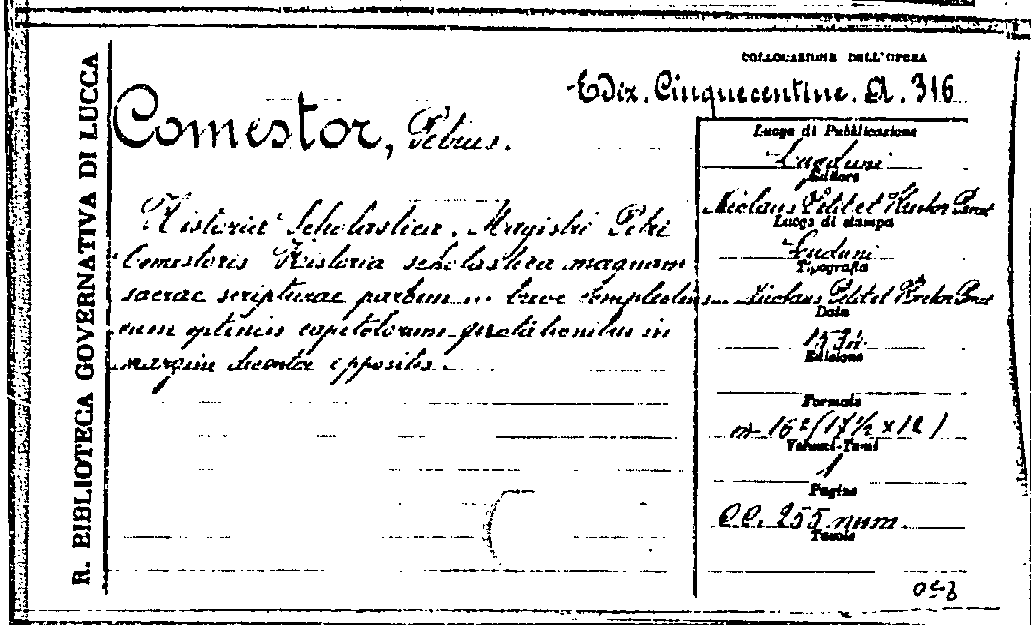 R. BIBLIOTECA GOVERNATIVA DI LUCCA
COLLOCAZIONE DELL'OPERA
Ediz. Cinquecentine. A. 316
Comestor, Petrus.
Historia Scholastica. Magistri Petri
Comestoris Historia scholastica magnam
sacrae scripturae partem ... breve
cum optimis capitolorum in
margine oppositis.
Luogo di Pubblicazione
Lugduni
Editore
Nicolaus Petit et Hector
Luogo di stampa
Lugduni
Tipografia
Nicolaus Petit et Hector
Data
Edizione
Formato
in 16° (17½ x 12)
Volumi-Tomi
1
Pagine
CC. 255 num.
Tavole